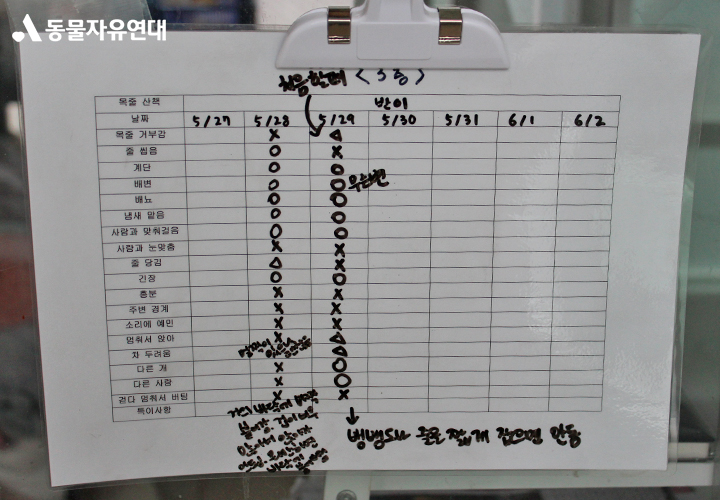 동물자유연대
처음할때 <3층>
목줄 산책 반이
날짜 5/27 5/28 5/29 5/30 5/31 6/1 6/2
목줄 거부감 X △
줄 씹음 O X
계단 O O
배변 O O 무른변
배뇨 O O
냄새 맡음 O O
사람과 맞춰걸음 O O
사람과 눈맞춤 X X
줄 당김 △ X
긴장 O O
흥분 X X
주변 경계 X X
소리에 예민 X X
멈춰서 앉아 X △
차 두려움 △
다른 개 X O
다른 사람 X O
걷다 멈춰서 버팀 X X
특이사항
줄을 짧게 잡으면 안됨